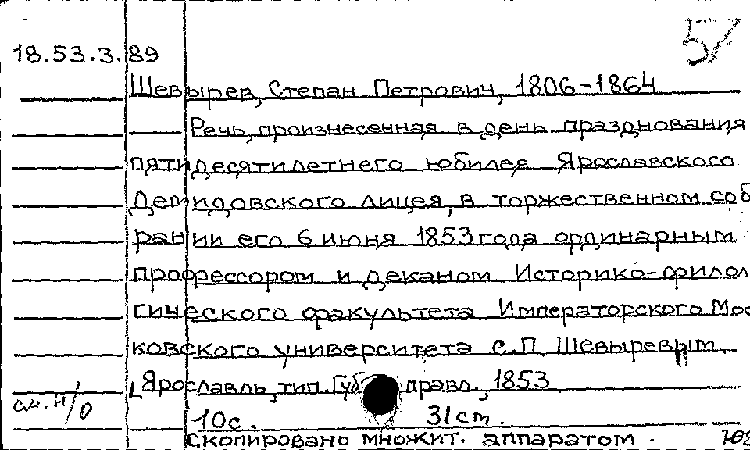 57
18.53.3.89
Шевырев, Степан Петрович, 1806-1864
Речь, произнесенная в день празднования
пятидесятилетнего юбилея Ярославского
Демидовского лицея, в торжественном соб
рании его 6 июня 1853 года ординарным
профессором и деканом Историко-филол
гического факультета Императорского Мос
ковского университета С.П. Шевыревым.
Ярославль, тип. Губ. правл., 1853
см. н/о
10с. 31см.
Скопировано множит. аппаратом.